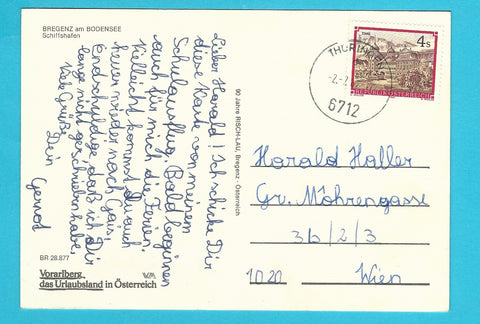 BREGENZ am BODENSEE
Schiffshafen
Lieber Harald! Ich schicke Dir
diese Karte von meinem
Schulausflug. Bald beginnen
auch für mich die Ferien.
Vielleicht kommst Du auch
heuer wieder nach Gais.
Endschuldige daß ich Dir
lange nicht geschrieben habe.
Viele Grüße
Dein
Gernot
BR 28.877
Vorarlberg
das Urlaubsland in Österreich
90 Jahre RISCH-LAU, Bregenz - Österreich
4 S
REPUBLIK ÖSTERREICH
6712
Harald Haller
Gr. Möhrengasse
3b/2/3
1020 Wien